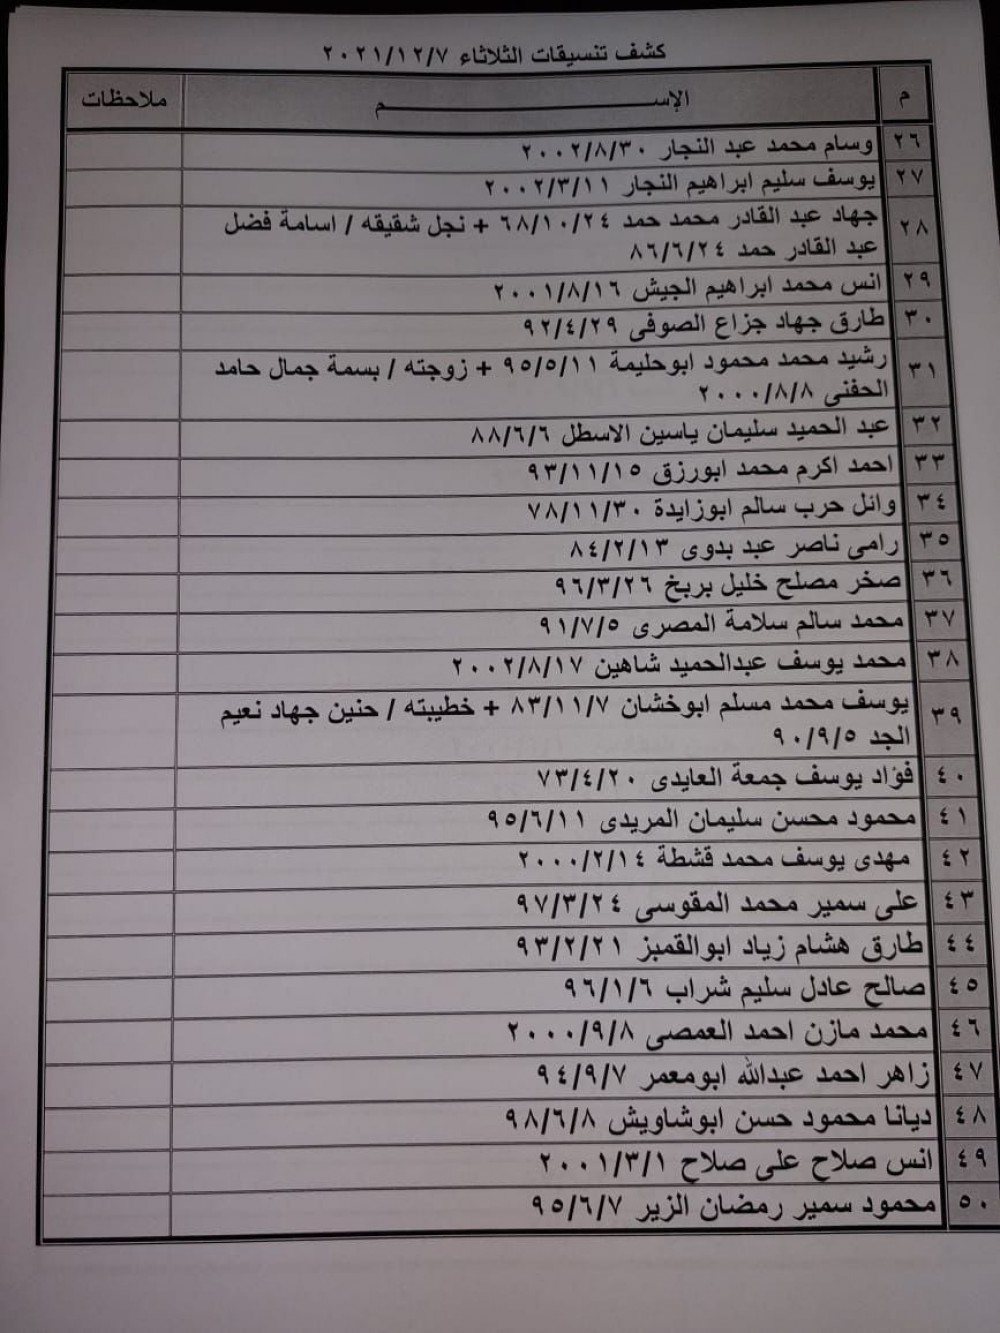 كشف تنسيقات الثلاثاء ٢٠٢١/١٢/٧
م الإســـــــــم ملاحظات
٢٦ وسام محمد عبد النجار ٢٠٠٢/٨/٣٠
٢٧ يوسف سليم ابراهيم النجار ٢٠٠٢/٣/١١
٢٨ جهاد عبد القادر محمد حمد ٦٨/١٠/٢٤ + نجل شقيقه / اسامة فضل
عبد القادر حمد ٨٦/٦/٢٤
٢٩ انس محمد ابراهيم الجيش ٢٠٠١/٨/١٦
٣٠ طارق جهاد جزاع الصوفى ٩٢/٤/٢٩
٣١ رشيد محمد محمود ابوحليمة ٩٥/٥/١١ + زوجته / بسمة جمال حامد
الحفنى ٢٠٠٠/٨/٨
٣٢ عبد الحميد سليمان ياسين الاسطل ٨٨/٦/٦
٣٣ احمد اكرم محمد ابورزق ٩٣/١١/١٥
٣٤ وائل حرب سالم ابوزايدة ٧٨/١١/٣٠
٣٥ رامى ناصر عبد بدوى ٨٤/٢/١٣
٣٦ صخر مصلح خليل بربخ ٩٦/٣/٢٦
٣٧ محمد سالم سلامة المصرى ٩١/٧/٥
٣٨ محمد يوسف عبدالحميد شاهين ٢٠٠٢/٨/١٧
٣٩ يوسف محمد مسلم ابوخشان ٨٣/١١/٧ + خطيبته / حنين جهاد نعيم
الجد ٩٠/٩/٥
٤٠ فؤاد يوسف جمعة العايدى ٧٣/٤/٢٠
٤١ محمود محسن سليمان المريدى ٩٥/٦/١١
٤٢ مهدى يوسف محمد قشطة ٢٠٠٠/٢/١٤
٤٣ على سمير محمد المقوسى ٩٧/٣/٢٤
٤٤ طارق هشام زياد ابوالقمبز ٩٣/٢/٢١
٤٥ صالح عادل سليم شراب ٩٦/١/٦
٤٦ محمد مازن احمد العمصى ٢٠٠٠/٩/٨
٤٧ زاهر احمد عبدالله ابومعمر ٩٤/٩/٧
٤٨ ديانا محمود حسن ابوشاويش ٩٨/٦/٨
٤٩ انس صلاح على صلاح ٢٠٠١/٣/١
٥٠ محمود سمير رمضان الزير ٩٥/٦/٧